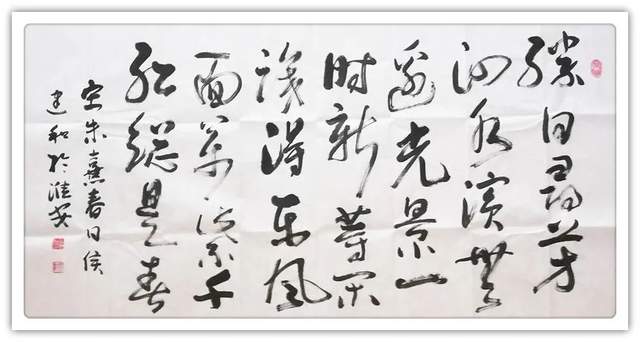 勝日尋芳
泗水濱無
邊光景一
時新等閒
識得東風
面萬紫千
紅總是春
宋朱熹春日侯
建和於淮安